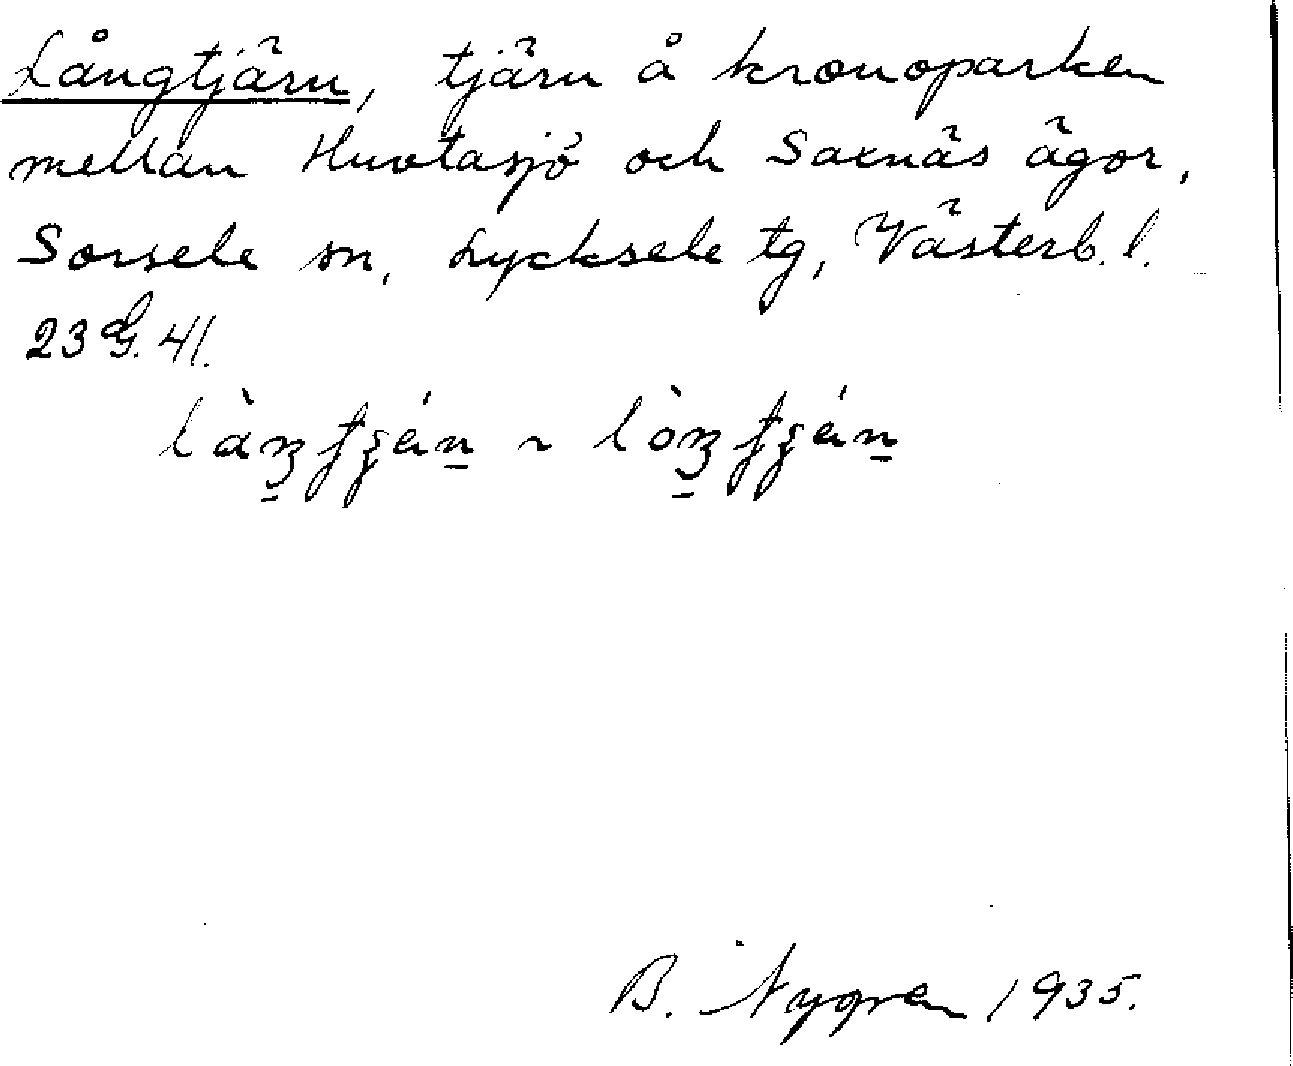 Långtjärn, tjärn å kronoparken
mellan Huvtasjö och Saxnäs ägor,
Sorsele sn, Lycksele tg, Västerb. l.
23 G. 41.
B. Nygren 1935.